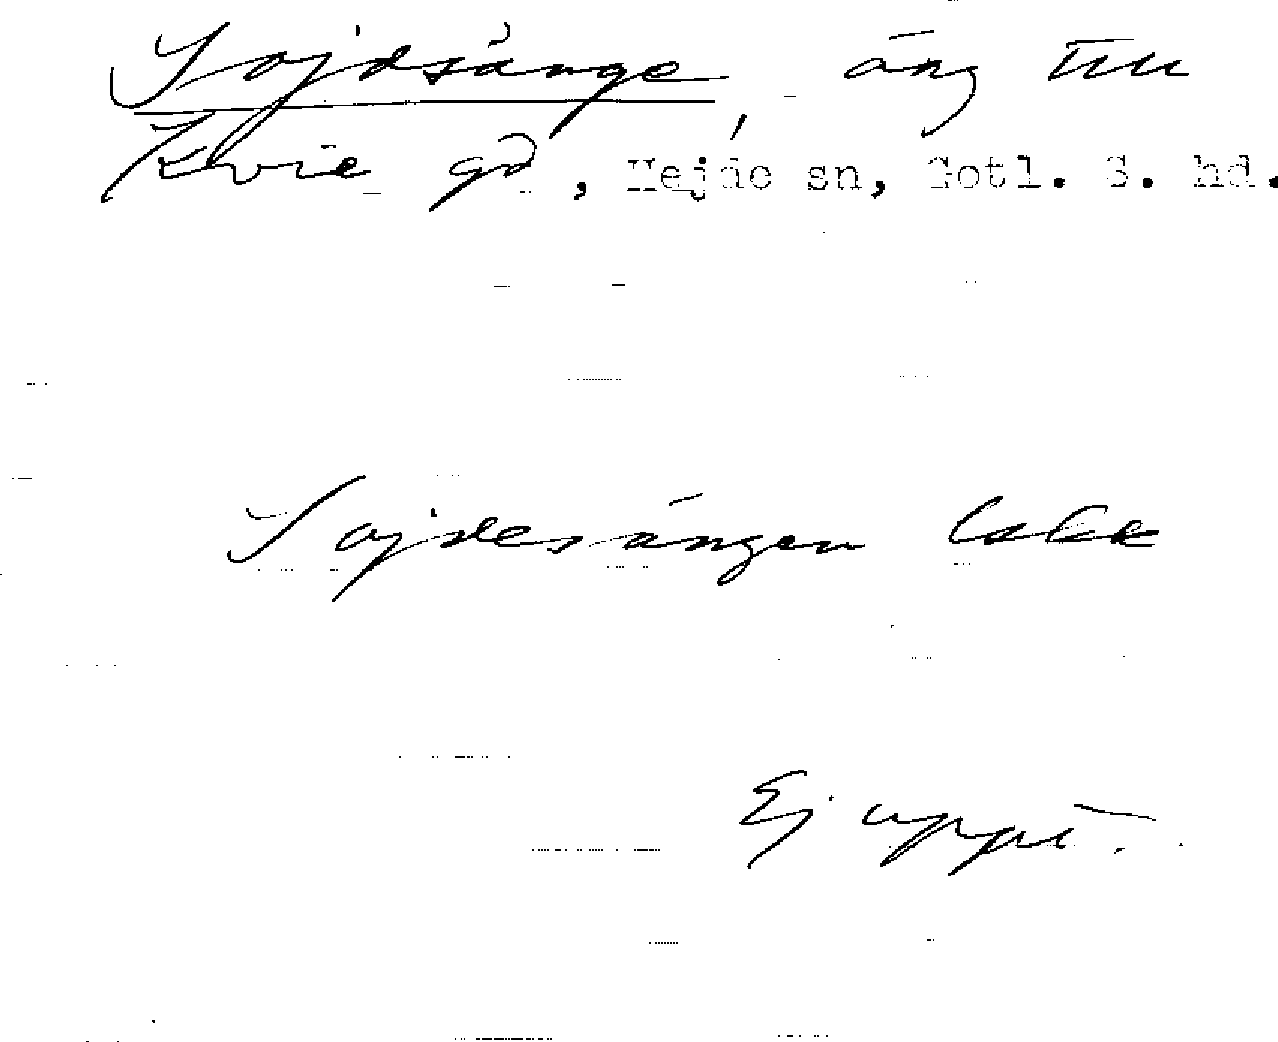 Sojdsänge, äng till
Kvie gd, Hejde sn, Gotl. S. hd.
Sojdesängen lskk
Ej uppt.